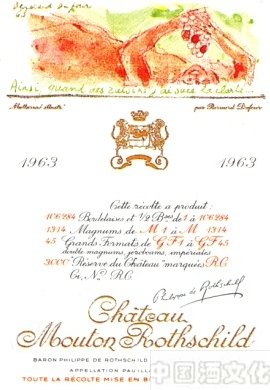 Bernard Dufour
63
Ainsi quand des raisins j'ai sucé la clarté...
Mallarmé illustré par Bernard Dufour
1963 1963
Cette récolte a produit:
106284 Bordelaises et 1/2 Bses de 1 à 106284
1314 Magnums de M 1 à M 1314
45 Grands Formats de GF1 à GF45
double magnums, jeroboams, impériales
3000 "Réserve du Château" marquées R.C.
Ci, N° R.C.
Philippe de Rothschild
Château
Mouton Rothschild
BARON PHILIPPE DE ROTHSCHILD
APPELLATION PAUILL
TOUTE LA RÉCOLTE MISE EN B
中国酒文化